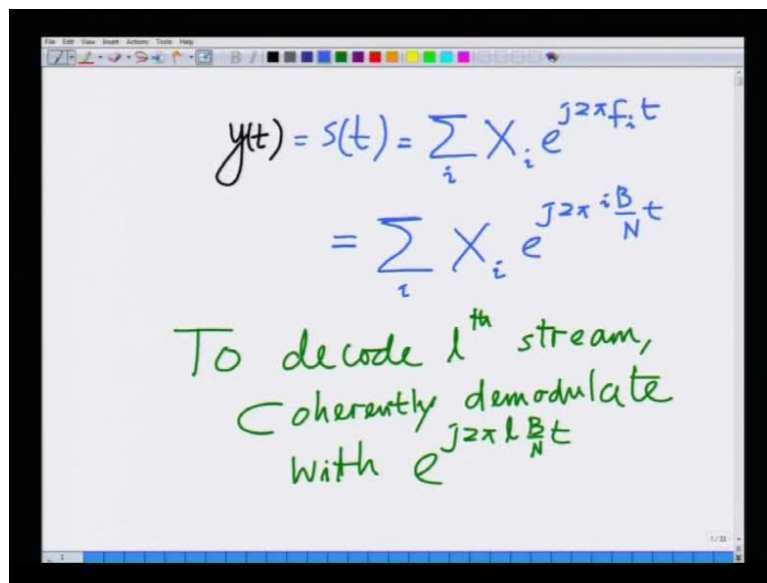 File Edit View Insert Actions Tools Help
y(t) = s(t) = ∑_i X_i e^{j2πf_i t}
= ∑_i X_i e^{j2π i B/N t}
To decode l^th stream,
Coherently demodulate
with e^{j2π l B/N t}
1/33
1